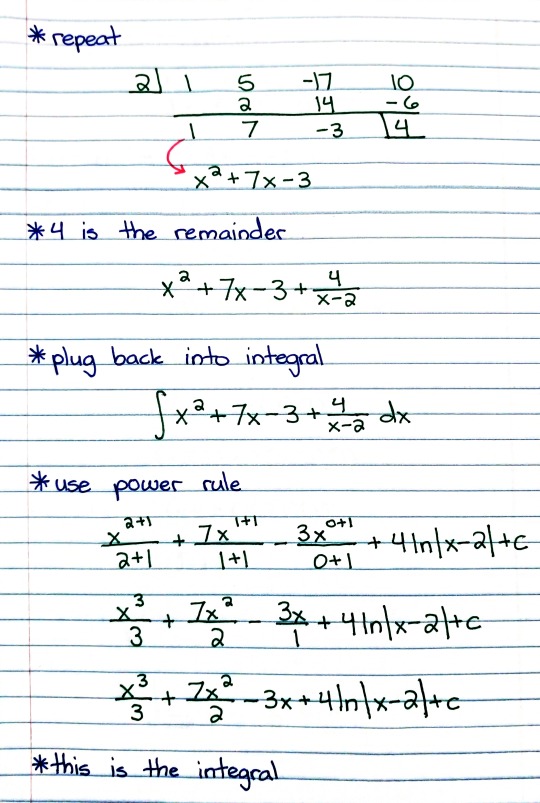 * repeat
2| 1 5 -17 10
2 14 -6
1 7 -3 |4
x² + 7x - 3
* 4 is the remainder
x² + 7x - 3 + 4/(x-2)
* plug back into integral
∫ x² + 7x - 3 + 4/(x-2) dx
* use power rule
x^(2+1)/(2+1) + 7x^(1+1)/(1+1) - 3x^(0+1)/(0+1) + 4ln|x-2|+c
x³/3 + 7x²/2 - 3x/1 + 4ln|x-2|+c
x³/3 + 7x²/2 - 3x + 4ln|x-2|+c
* this is the integral